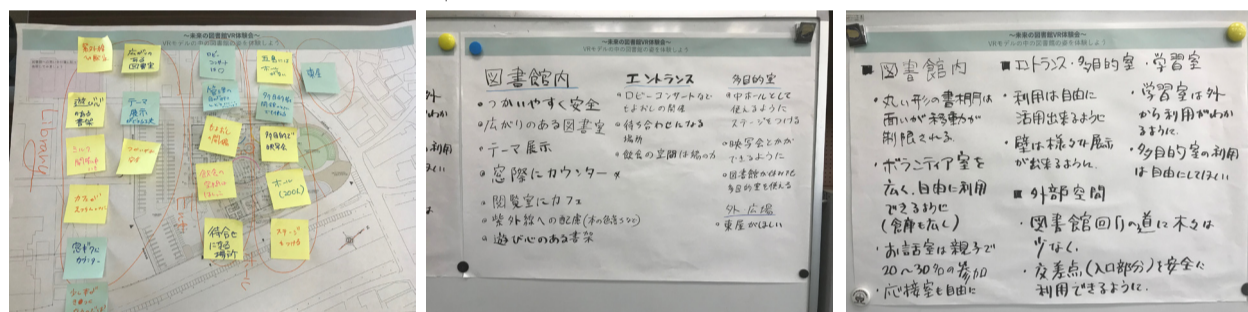 ～未来の図書館VR体験会～
VRモデルの中の図書館の姿を体験しよう
広がりの
ある
図書室
遊び心
ある
書架
テーマ
展示
多目的で
映写会
ホール
(200人)
待合せ
になる
場所
ステージ
東屋
窓ギワに
カウンター
Library
～未来の図書館VR体験会～
VRモデルの中の図書館の姿を体験しよう
図書館内
・つかいやすく安全
・広がりのある図書室
・テーマ展示
・窓際にカウンター
・閲覧室にカフェ
・紫外線への配慮
・遊び心のある書架
エントランス
・ロビーコンサートなど
もよおしの開催
・待ち合わせになる
場所
・飲食の空間は
多目的室
・中ホールとして
使えるように
ステージをつける
・映写会とかが
できるように
・図書館が休みでも
多目的室を使える
外 広場
・東屋がほしい
～未来の図書館VR体験会～
VRモデルの中の図書館の姿を体験しよう
■ 図書館内
・丸い形の書棚は
面白いが移動が
制限される。
・ボランティア室を
広く、自由に利用
できるように
(倉庫も広く)
・お話室は親子で
20～30名の参加
・応接室も自由に
■ エントランス・多目的室・学習室
・利用は自由に
活用出来るように
・壁は様々な展示
が出来るように。
・学習室は外
から利用がわか
るように。
・多目的室の利用
は自由にしてほしい
■ 外部空間
・図書館回りの道に木々は
少なく。
・交差点(入口部分)を安全に
利用できるように。